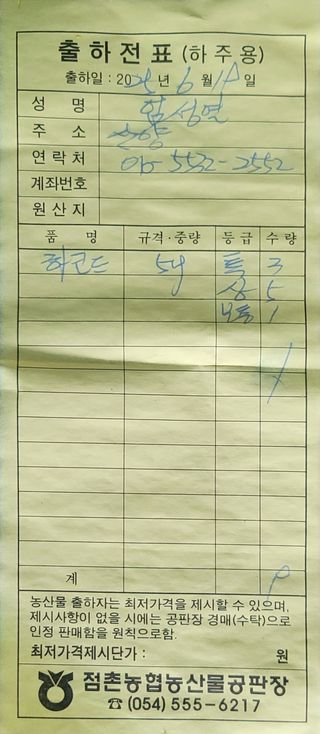 출하전표 (하주용)
출하일 : 2025년 6월 19일
성 명 함성열
주 소 산양
연락처 010 5532-2552
계좌번호
원산지
품 명 규격·중량 등급 수량
하코드 5g 특 3
상 5
보통 1
계 9
농산물 출하자는 최저가격을 제시할 수 있으며,
제시사항이 없을 시에는 공판장 경매(수탁)으로
인정 판매함을 원칙으로함.
최저가격제시단가 : 원
점촌농협농산물공판장
☎ (054) 555-6217